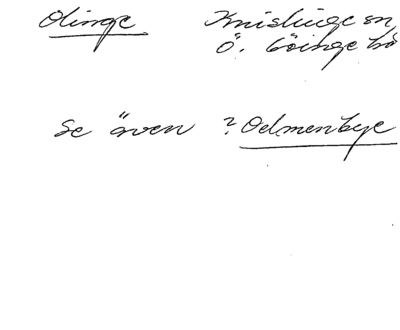 Olinge Knislinge sn
Ö. Göinge hd
Se även ? Oelmenbye